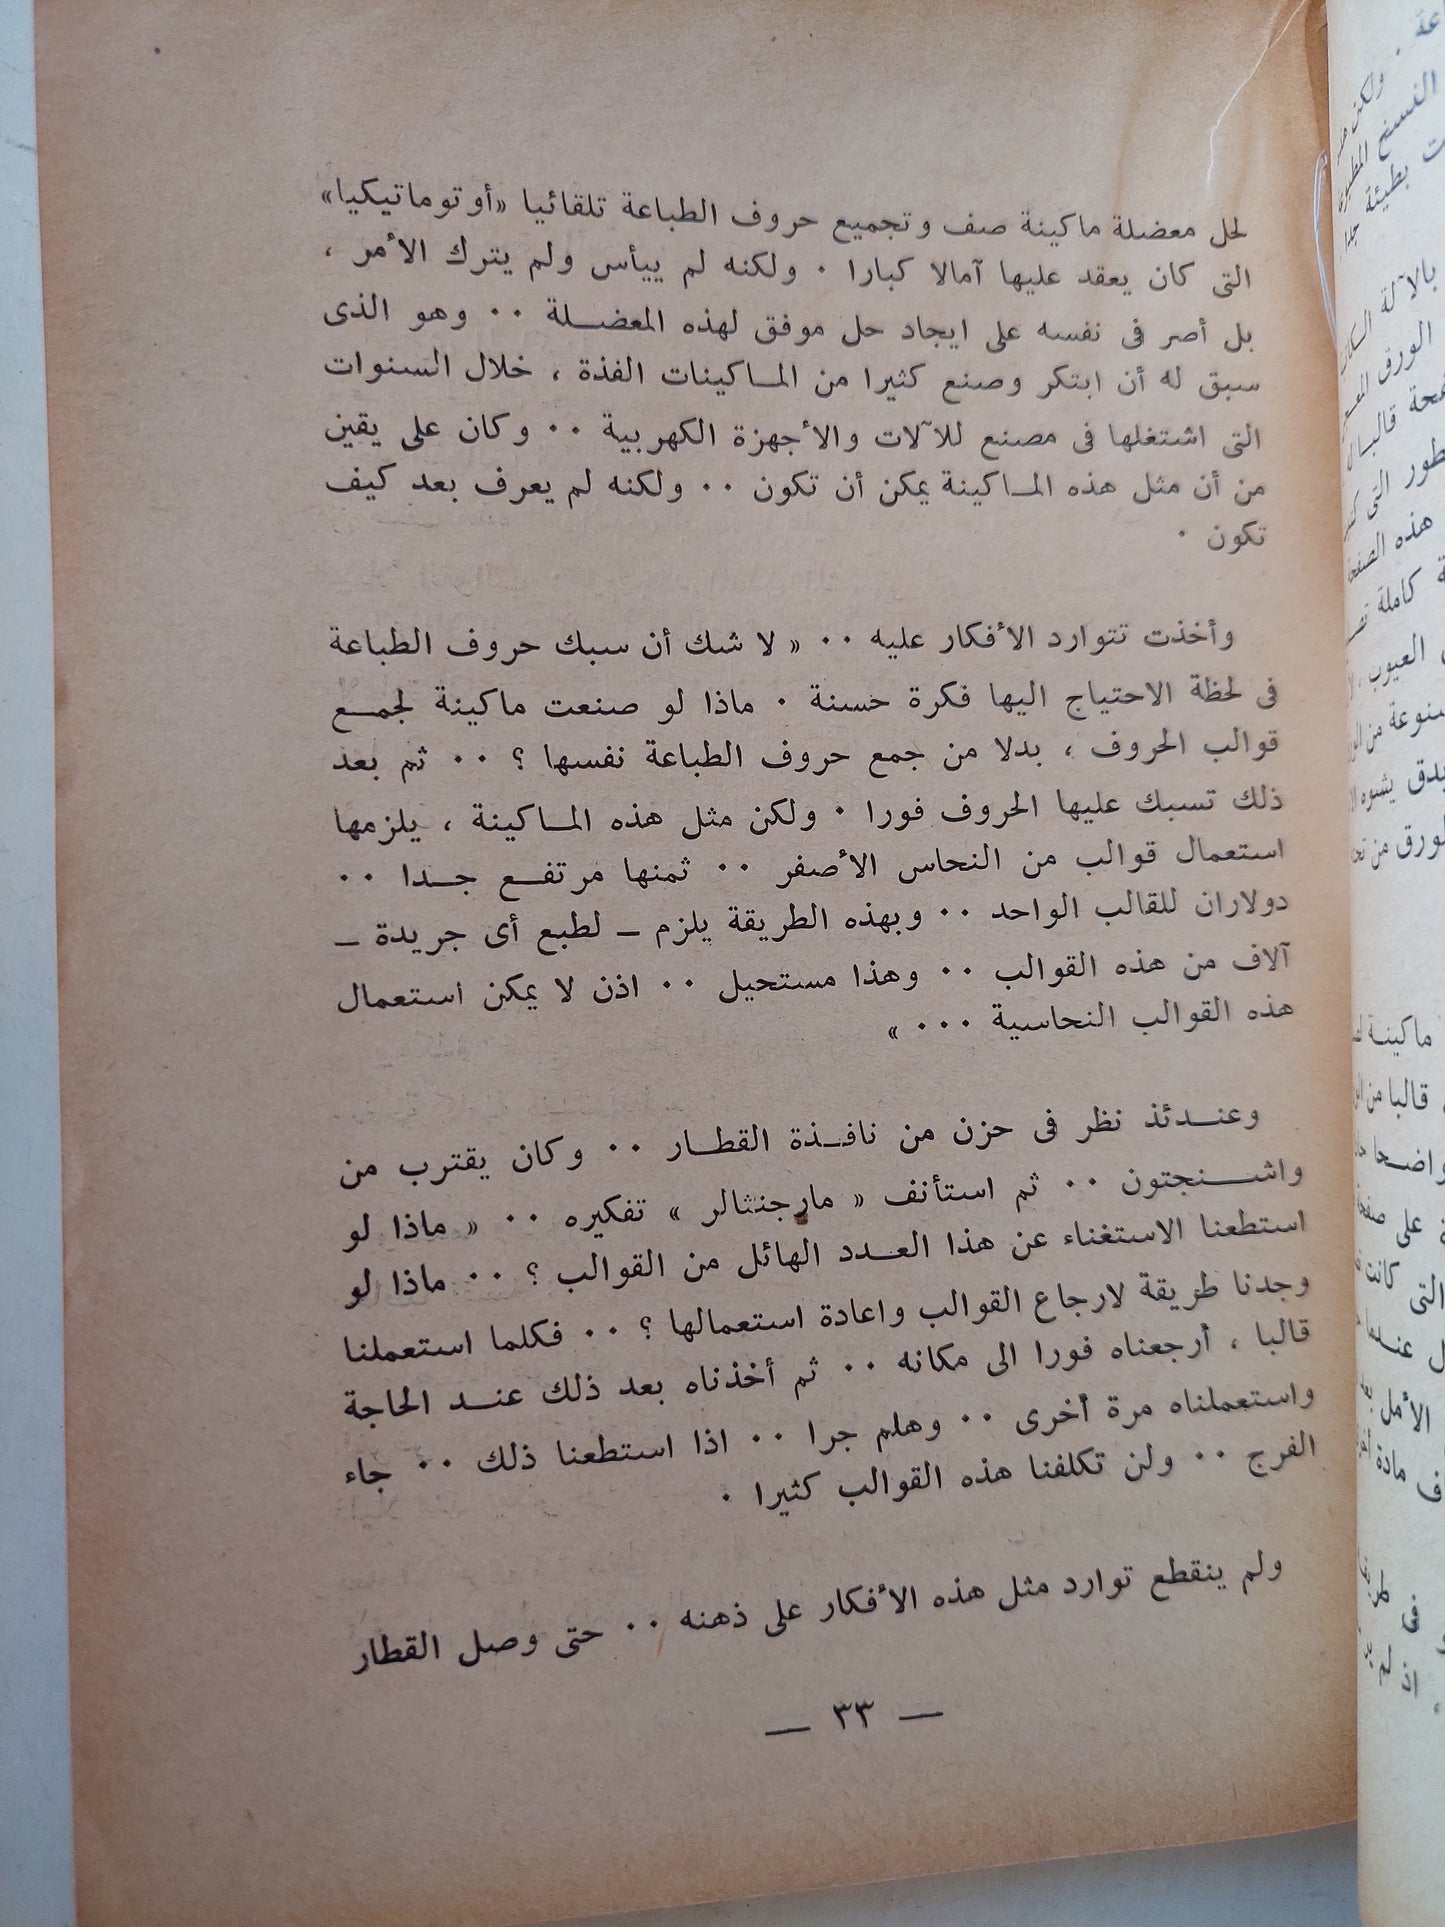 لحل معضلة ماكينة صف وتجميع حروف الطباعة تلقائيا «أوتوماتيكيا»
التى كان يعقد عليها آمالا كبارا ٠ ولكنه لم ييأس ولم يترك الأمر ،
بل أصر فى نفسه على ايجاد حل موفق لهذه المعضــلة ٠٠ وهو الذى
سبق له أن ابتكر وصنع كثيرا من المــاكينات الفذة ، خلال السنوات
التى اشتغلها فى مصنع للآلات والأجهزة الكهربية ٠٠ وكان على يقين
من أن مثل هذه المــاكينة يمكن أن تكون ٠٠ ولكنه لم يعرف بعد كيف
تكون ٠
وأخذت تتوارد الأفكار عليه ٠٠ « لا شك أن سبك حروف الطباعة
فى لحظة الاحتياج اليها فكرة حسنة ٠ ماذا لو صنعت ماكينة لجمــع
قوالب الحروف ، بدلا من جمع حروف الطباعة نفسها ؟ ٠٠ ثم بعد
ذلك تسبك عليها الحروف فورا ٠ ولكن مثل هذه المــاكينة ، يلزمها
استعمال قوالب من النحاس الأصفر ٠٠ ثمنها مرتفــع جــدا ٠٠
دولاران للقالب الواحد ٠٠ وبهذه الطريقة يلزم ـ لطبع أى جريدة ـ
آلاف من هذه القوالب ٠٠ وهذا مستحيل ٠٠ اذن لا يمكن استعمال
هذه القوالب النحاسية ٠٠٠ »
وعنــدئذ نظر فى حزن من نافــذة القطــار ٠٠ وكان يقترب من
واشــنجتون ٠٠ ثم استأنف « مارجنثالر » تفكيره ٠٠ « ماذا لو
استطعنا الاستغناء عن هذا العــدد الهائل من القوالب ؟ ٠٠ ماذا لو
وجدنا طريقة لارجاع القوالب واعادة استعمالها ؟ ٠٠ فكلما استعملنا
قالبا ، أرجعناه فورا الى مكانه ٠٠ ثم أخذناه بعد ذلك عنــد الحاجة
واستعملناه مرة أخرى ٠٠ وهلم جرا ٠٠ اذا استطعنا ذلك ٠٠ جاء
الفرج ٠٠ ولن تكلفنا هذه القوالب كثيرا ٠
ولم ينقطع توارد مثل هذه الأفكار على ذهنه ٠٠ حتى وصل القطار
— ٣٣ —